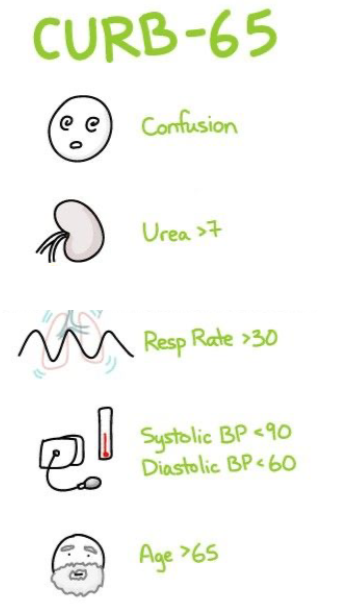 CURB-65
Confusion
Urea >7
Resp Rate >30
Systolic BP <90
Diastolic BP <60
Age >65